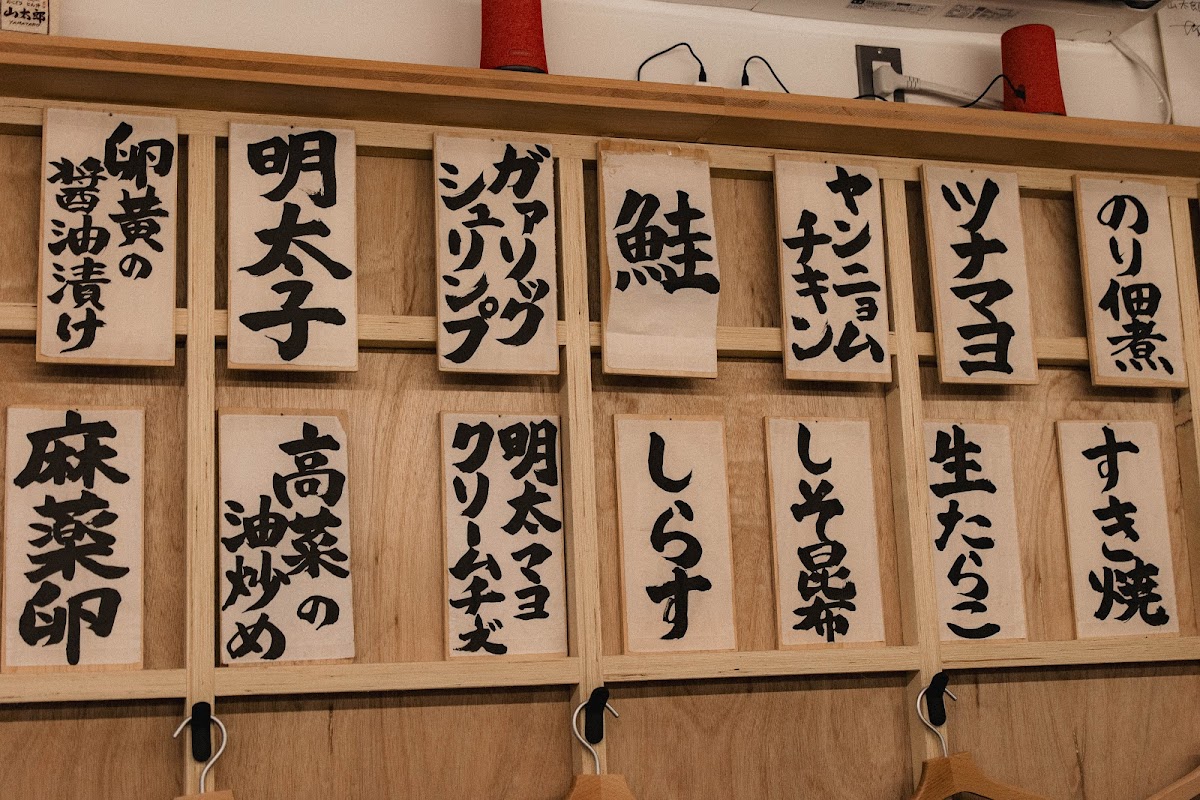 山太郎
YAMATARO
卵黄の
醤油漬け
明太子
ガァリック
シュリンプ
鮭
ヤンニョム
チキン
ツナマヨ
のり佃煮
麻薬卵
高菜の
油炒め
明太マヨ
クリームチーズ
しらす
しそ昆布
生たらこ
すき焼